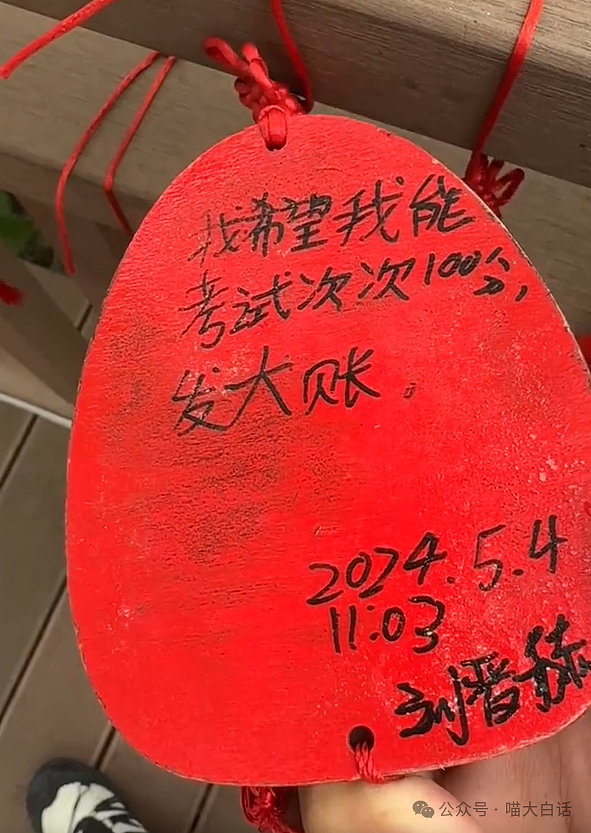 我希望我能
考试次次100分,
发大账。
2024.5.4
11:03
刘晋
公众号·喵大白话